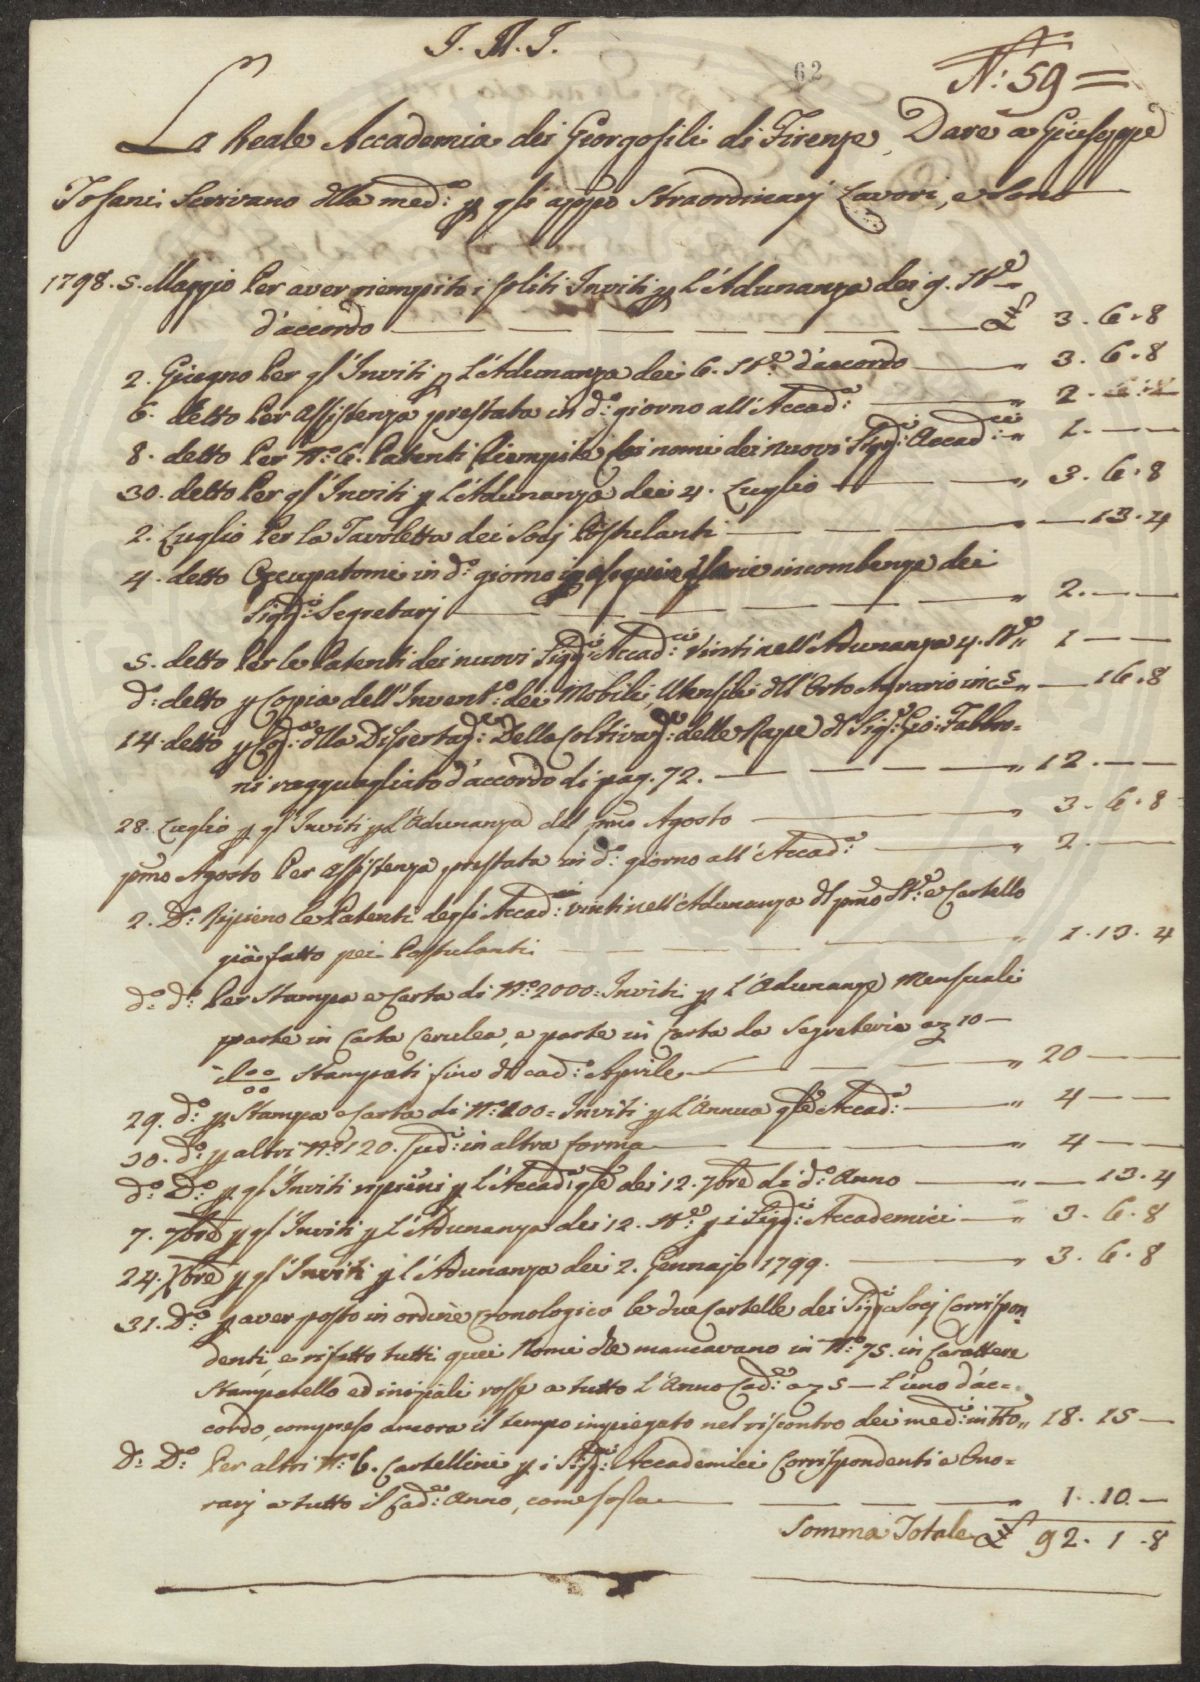 J. M. J.
62
N.° 59 =
La Reale Accademia dei Georgofili di Firenze, Dare a Giuseppe
Tofani Scrivano dlla med.a p gli appo Straordinarj Lavori, e Sono
1798. 5. Maggio Per aver riempito i soliti Inviti p L'Adunanza dei 9. St.e
d'accordo — £ 3. 6. 8
2. Giugno Per gl'Inviti p L'Adunanza dei 6. St.e d'accordo — " 3. 6. 8
6. detto Per assistenza prestata in d.o giorno all'Accad.a — " 2.
8. detto Per N.o 6. Patenti Riempite coi nomi dei nuovi Sigg.i Accad.ci " 1. — —
30. detto Per gl'Inviti p L'Adunanza dei 4. Luglio — " 3. 6. 8
2. Luglio Per la Tavoletta dei Socj Postulanti — " — 13. 4
4. detto Occupatomi in d.o giorno in eseguire varie incombenze dei
Sigg.i Segretarj — " 2. — —
5. detto Per le Patenti dei nuovi Sigg.i Accad.ci Vinti nell'Adunanza 4. St.e " 1 — —
d.o detto p Copia dell'Invent.o dei Mobili, Utensili dll'Orto Agrario in c.s " — 16. 8
14. detto p Cop.a dlla Disertaz.e Della Coltivaz.e delle Rape dl Sig.r Gio: Fabbro=
ni ragguagliato d'accordo di pag. 72. — " 12. — —
28. Luglio p gl'Inviti p L'Adunanza del pmo Agosto — " 3. 6. 8
pmo Agosto Per assistenza prestata in d.o giorno all'Accad.a — " 2. —
2. D.o Ripieno le Patenti degli Accad.ci vinti nell'Adunanza dl pmo St.e e Cartello
già fatto pei Postulanti — " 1. 13. 4
d.o d.o Per Stampa e Carta di N.o 2000 = Inviti p L'Adunanze Mensuali
parte in Carta Cerulea, e parte in Carta da Segreteria a £ 10 —
il 00/00 Stampati fino dl cad.o Aprile — " 20 — —
29. d.o p Stampa e Carta di N.o 200 = Inviti p L'Annua qle Accad.a — " 4 — —
30. d.o p altri N.o 120. sud.i in altra forma — " 4 — —
d.o D.o p gl'Inviti ripieni p L'Accad.a qle dei 12. 7bre di d.o Anno — " — 13. 4
7. 7bre p gl'Inviti p L'Adunanza dei 12. St.e p i Sigg.i Accademici — " 3. 6. 8
24. Xbre p gl'Inviti p l'Adunanza dei 2. Gennajo 1799. — " 3. 6. 8
31. D.o p aver posto in ordine Cronologico le due Cartelle dei Sigg.i Socj Corrispon
denti, e rifatto tutti quei Nomi che mancavano in N.o 75. in Carattere
Stampatello ed iniziali rosse a tutto L'Anno Cad.e a 5 — L'uno d'ac=
cordo, compreso ancora il tempo impiegato nel riscontro dei med.i in tto " 18. 15 —
D.o D.o Per altri N.o 6. Cartellini p i Sigg.i Accademici Corrispondenti e Ono=
rarj a tutto il Cad.e Anno, come sopra — " 1. 10. —
Somma Totale £ 92. 1. 8